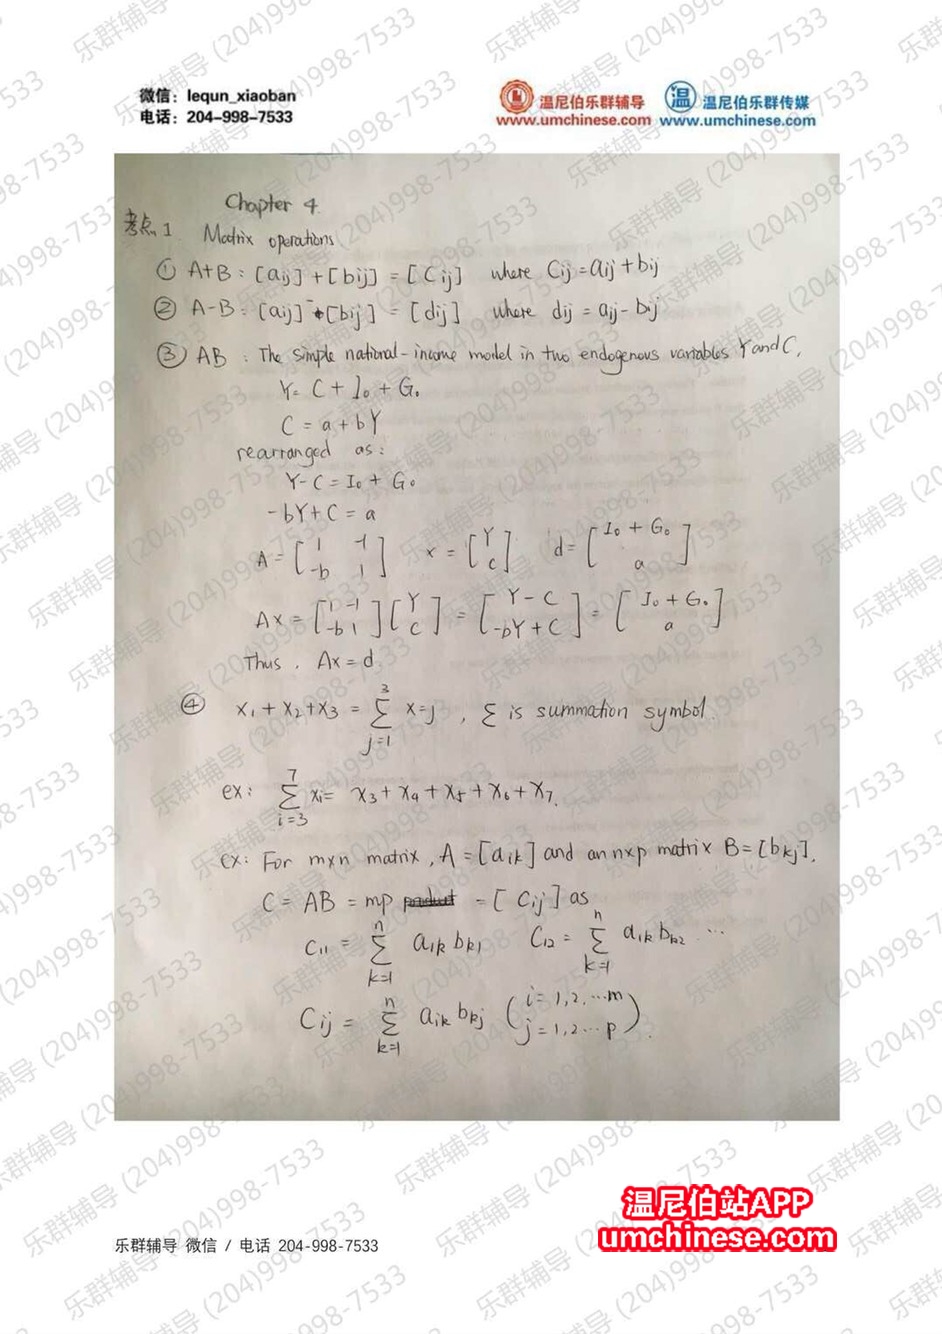 微信：lequn_xiaoban
电话：204-998-7533
温尼伯乐群辅导
www.umchinese.com
温尼伯乐群传媒
www.umchinese.com
Chapter 4.
考点1 Matrix operations
① A+B : [aij] + [bij] = [Cij] where Cij = aij + bij
② A-B : [aij] - [bij] = [dij] where dij = aij - bij
③ AB : The simple national-income model in two endogenous variables Y and C,
Y = C + I₀ + G₀
C = a + bY
rearranged as:
Y-C = I₀ + G₀
-bY+C = a
A = [1 -1; -b 1] x = [Y; C] d = [I₀ + G₀; a]
Ax = [1 -1; -b 1] [Y; C] = [Y-C; -bY+C] = [I₀+G₀; a]
Thus, Ax = d
④ x₁ + x₂ + x₃ = Σ_{j=1}^{3} x=j , Σ is summation symbol.
ex: Σ_{i=3}^{7} xi = x₃ + x₄ + x₅ + x₆ + x₇.
ex: For mxn matrix, A = [aik] and an nxp matrix B = [bkj],
C = AB = mp = [Cij] as
C₁₁ = Σ_{k=1}^{n} a₁k bk₁ C₁₂ = Σ_{k=1}^{n} a₁k bk₂ ...
Cij = Σ_{k=1}^{n} aik bkj (i = 1,2,...m; j = 1,2...p).
温尼伯站APP
umchinese.com
乐群辅导 微信 / 电话 204-998-7533
乐群辅导 (204)998-7533